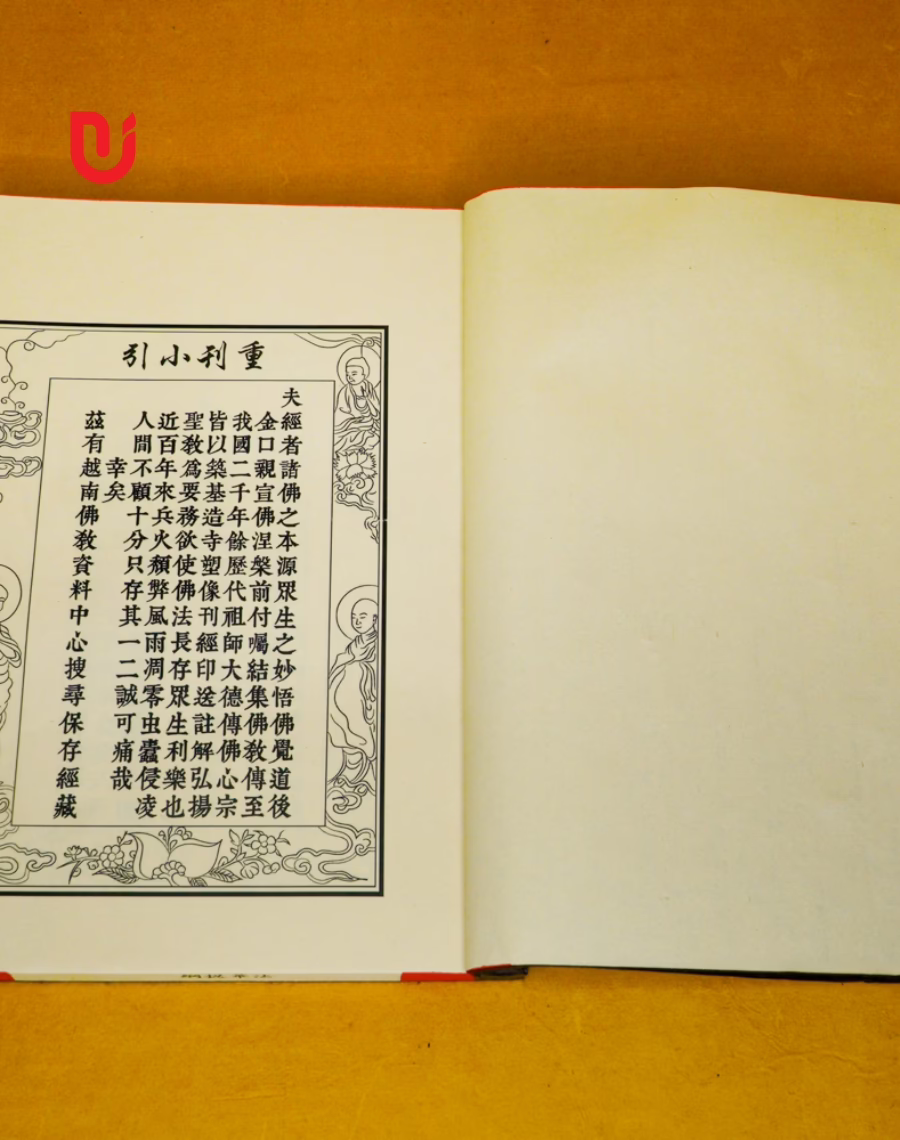 重刊小引
夫經者諸佛之本源眾生之妙悟佛覺道後
金口親宣佛涅槃前付囑結集佛敎傳至
我國二千年餘歷代祖師大德傳佛心宗
皆以築基造寺塑像刊經印送註解弘揚
聖敎爲要務欲使佛法長存眾生利樂也
近百年來兵火頹弊風雨凋零虫蠹侵凌
人間不顧十分只存其一二誠可痛哉
幸矣
茲有越南佛敎資料中心搜尋保存經藏